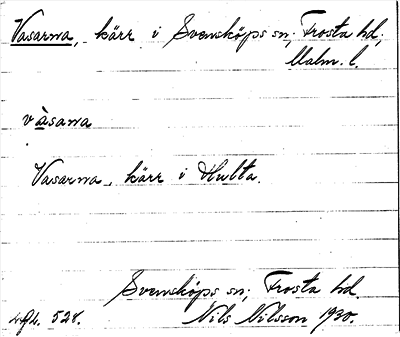 Vasarna, kärr i Svensköps sn; Frosta hd;
Malm. l.
vàsarna
Vasarna, kärr i Hulta.
Svensköps sn; Frosta hd.
528. Nils Nilsson 1930.